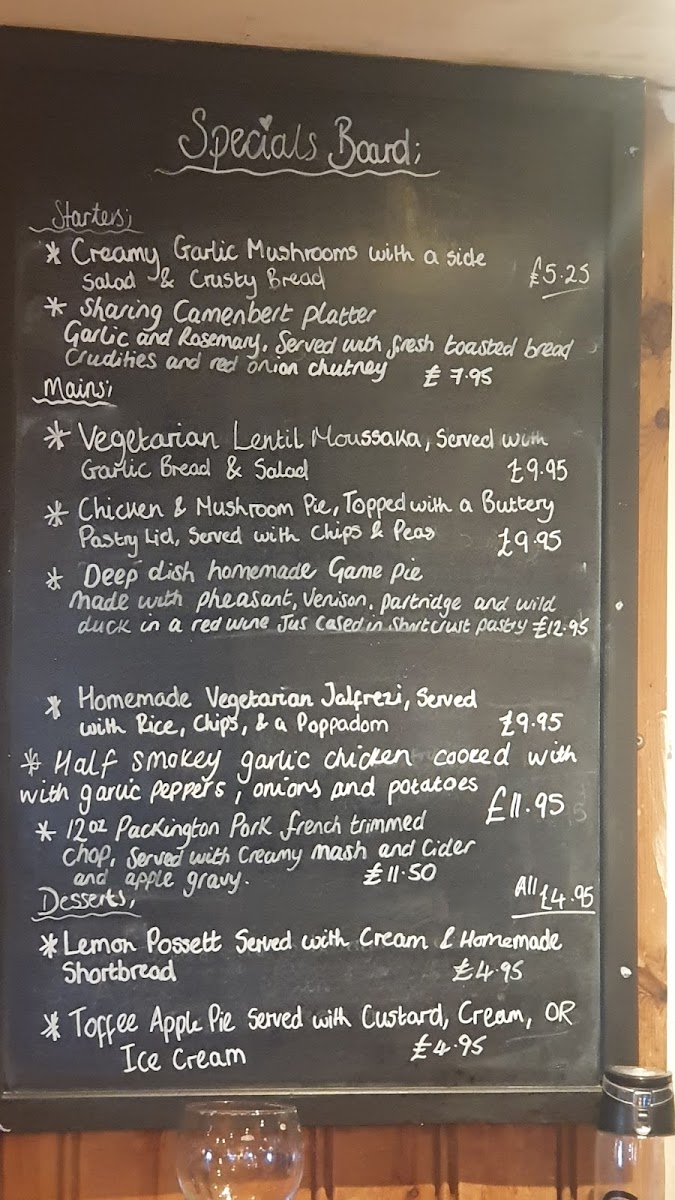 Specials Board;
Starters;
* Creamy Garlic Mushrooms with a side
Salad & Crusty Bread £5.25
* Sharing Camenbert platter
Garlic and Rosemary, Served with fresh toasted bread
Crudities and red onion chutney £7.95
Mains;
* Vegetarian Lentil Moussaka, Served with
Garlic Bread & Salad £9.95
* Chicken & Mushroom Pie, Topped with a Buttery
Pastry Lid, Served with Chips & Peas £9.95
* Deep dish homemade Game pie
made with pheasant, Venison, partridge and wild
duck in a red wine Jus Cased in Shortcrust pastry £12.95
* Homemade Vegetarian Jalfrezi, Served
with Rice, Chips, & a Poppadom £9.95
* Half smokey garlic chicken cooced with
with garlic peppers, onions and potatoes £11.95
* 12oz Packington Pork french trimmed
Chop, Served with Creamy mash and Cider
and apple gravy. £11.50
Desserts, All £4.95
* Lemon Possett Served with Cream & Homemade
Shortbread £4.95
* Toffee Apple Pie Served with Custard, Cream, OR
Ice Cream £4.95